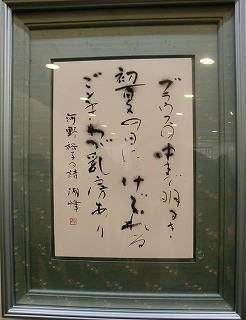 ブラウスの中まで明るき
初夏の日に けぶれる
ごときわが乳房あり
河野裕子の詩 湖峰